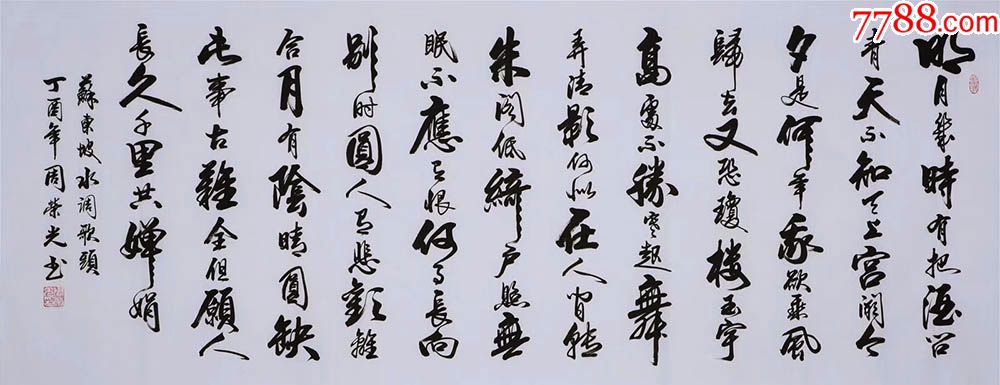 7788.com
明月幾時有把酒問
青天不知天上宮闕今
夕是何年我欲乘風
歸去又恐瓊樓玉宇
高處不勝寒起舞
弄清影何似在人間轉
朱閣低綺戶照無
眠不應有恨何事長向
別時圓人有悲歡離
合月有陰晴圓缺
此事古難全但願人
長久千里共嬋娟
蘇東坡水調歌頭
丁酉年周榮光书